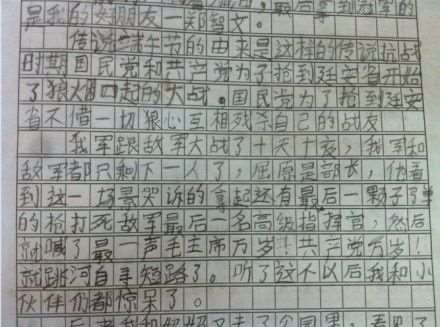 是我的好朋友一郑智文。
传说端午节的由来是这样的传说抗战
时期国民党和共产党为了抢到延安省开始
了狼烟四起的大战。国民党为了抢到延安
省不惜一切狠心互相残杀自己的战友
我军跟敌军大战了十天十夜，我军和
敌军都只剩下一人了，屈原是部长，他看
到这一场景哭诉的拿起还有最后一颗子弹
的枪打死敌军最后一名高级指挥官，然后
就喊了最一声毛主席万岁！共产党万岁！
就跳河自寻短路了。听了这个以后我和小
伙伴们都惊呆了。